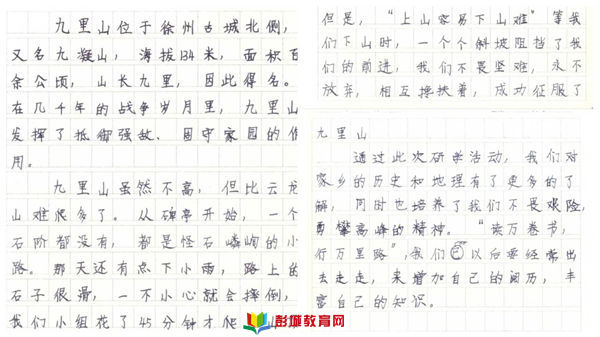 九里山位于徐州古城北侧,
又名九嶷山,海拔134米,面积百
余公顷,山长九里,因此得名。
在几千年的战争岁月里,九里山
发挥了抵御强敌、固守家园的作
用。
九里山虽然不高,但比云龙
山难爬多了。从碑亭开始,一个
石阶都没有,都是怪石嶙峋的小
路。那天还有点下小雨,路上的
石子很滑,一不小心就会摔倒,
我们小组花了45分钟才爬 山
但是,“上山容易下山难”等我
们下山时,一个个斜坡阻挡了我
们的前进,我们不畏坚难,永不
放弃,相互搀扶着,成功征服了
九里山
通过此次研学活动,我们对
家乡的历史和地理有了更多的了
解,同时也培养了我们不畏艰险,
勇攀高峰的精神。“读万卷书,
行万里路”,我们以后要经常出
去走走,来增加自己的阅历,丰
富自己的知识。
彭城教育网